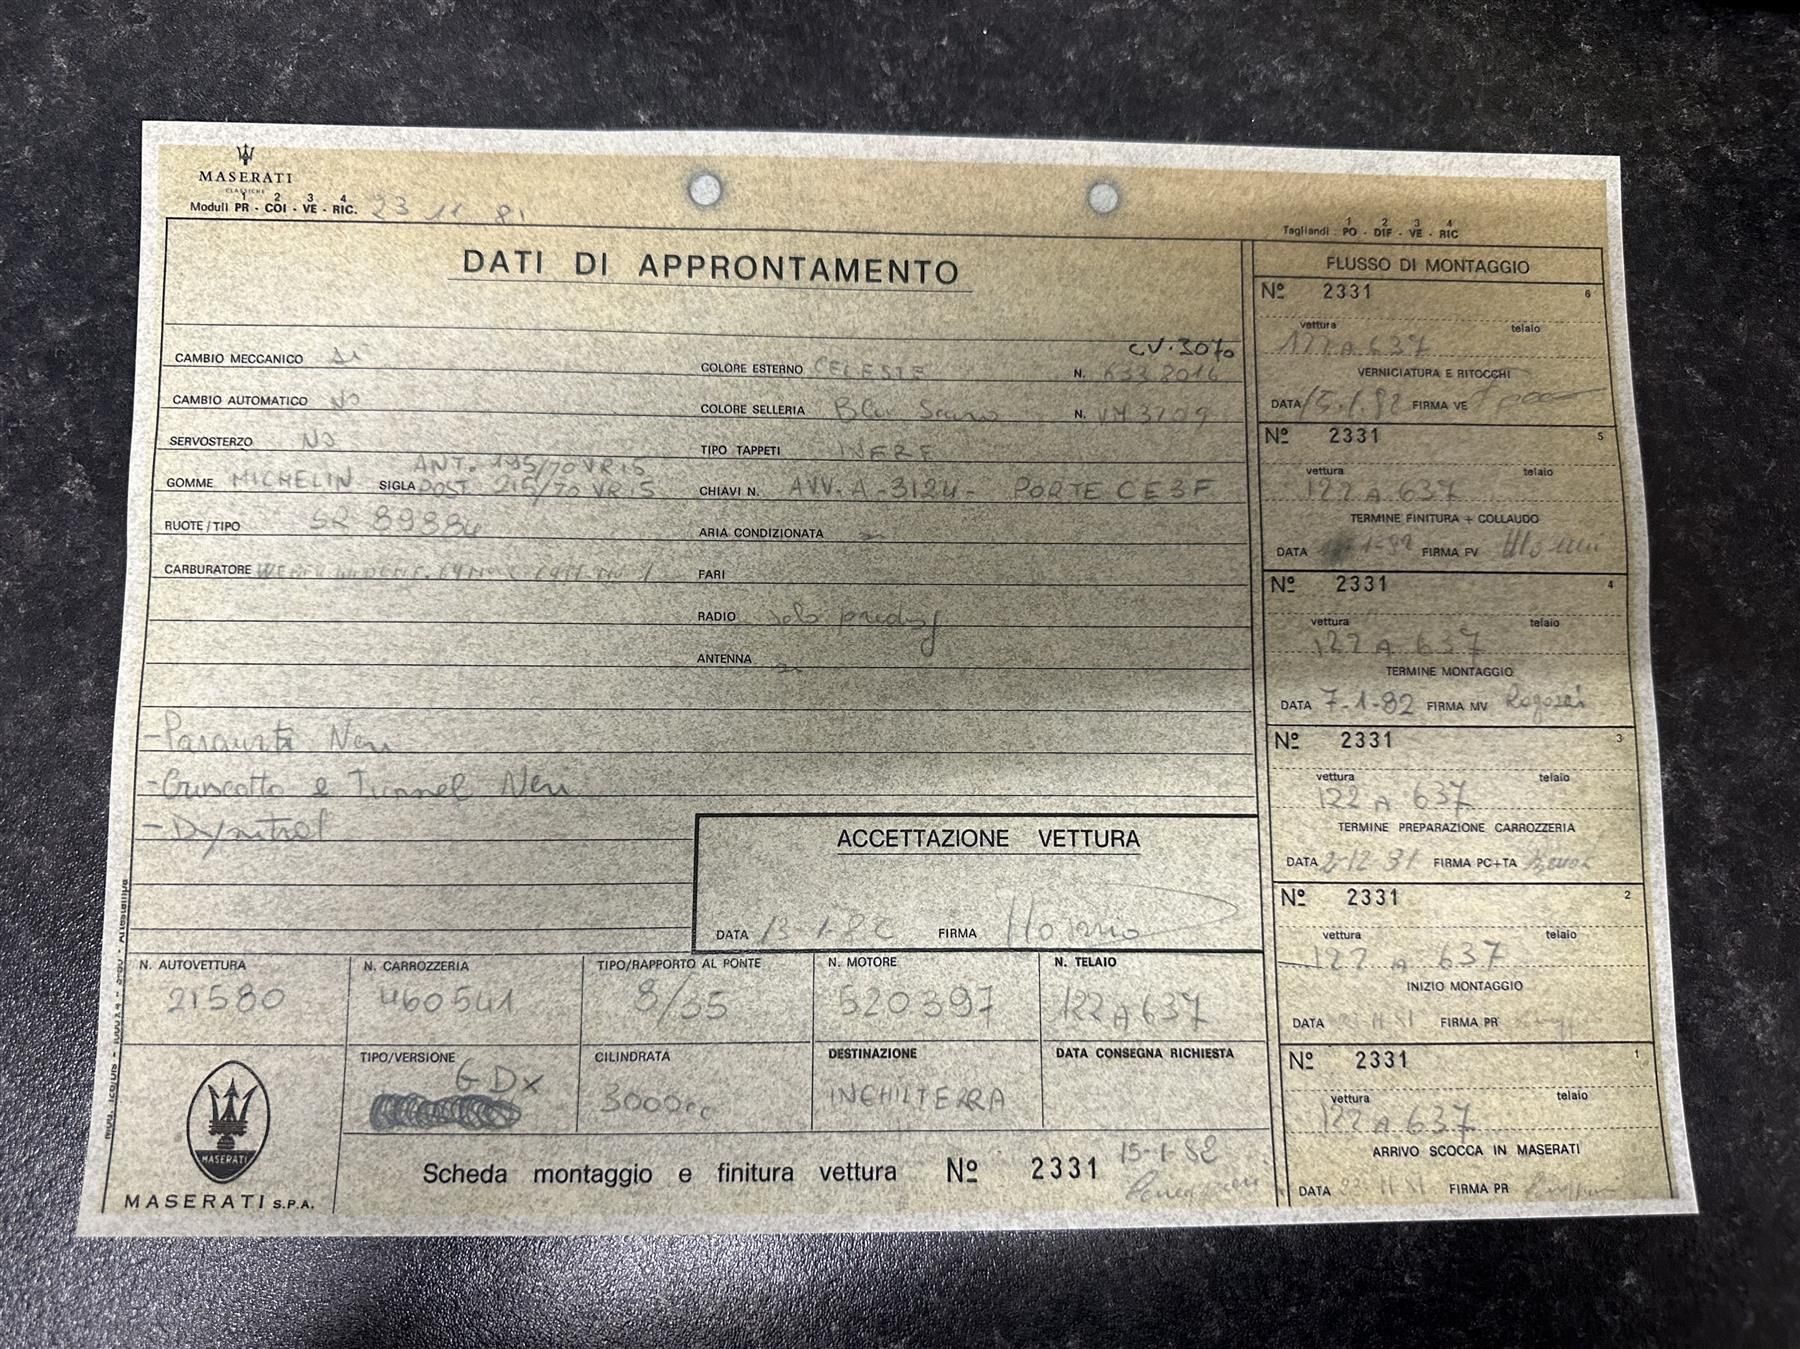 MASERATI
CLASSICHE
1 2 3 4
Moduli PR - COI - VE - RIC. 23 11 81
DATI DI APPRONTAMENTO
CAMBIO MECCANICO si
CAMBIO AUTOMATICO NO
SERVOSTERZO NO
GOMME MICHELIN SIGLA ANT. 195/70 VR15
POST 215/70 VR15
RUOTE/TIPO
CARBURATORE WEBER
CV. 3070
COLORE ESTERNO CELESTE N.
COLORE SELLERIA N. VM 3209
TIPO TAPPETI
CHIAVI N. AVV. A-3124- PORTE CE3F
ARIA CONDIZIONATA
FARI
RADIO solo
ANTENNA
Neri
- Cruscotto e Tunnel Neri
ACCETTAZIONE VETTURA
DATA 13-1-82 FIRMA
N. AUTOVETTURA
21580
N. CARROZZERIA
460541
TIPO/RAPPORTO AL PONTE
8/35
N. MOTORE
520397
N. TELAIO
122 A 637
MASERATI
MASERATI S.P.A.
TIPO/VERSIONE
GDX
CILINDRATA
3000cc
DESTINAZIONE
INGHILTERRA
DATA CONSEGNA RICHIESTA
Scheda montaggio e finitura vettura Nº 2331 15-1-82
1 2 3 4
Tagliandi : PO - DIF - VE - RIC
FLUSSO DI MONTAGGIO
Nº 2331 6
vettura telaio
122 A 637
VERNICIATURA E RITOCCHI
DATA 15.1.82 FIRMA VE
Nº 2331 5
vettura telaio
122 A 637
TERMINE FINITURA + COLLAUDO
DATA FIRMA FV
Nº 2331 4
vettura telaio
122 A 637
TERMINE MONTAGGIO
DATA 7-1-82 FIRMA MV
Nº 2331 3
vettura telaio
122 A 637
TERMINE PREPARAZIONE CARROZZERIA
DATA 2-12-81 FIRMA PC+TA
Nº 2331 2
vettura telaio
122 A 637
INIZIO MONTAGGIO
DATA FIRMA PR
Nº 2331 1
vettura telaio
122 A 637
ARRIVO SCOCCA IN MASERATI
DATA 23-11-81 FIRMA PR